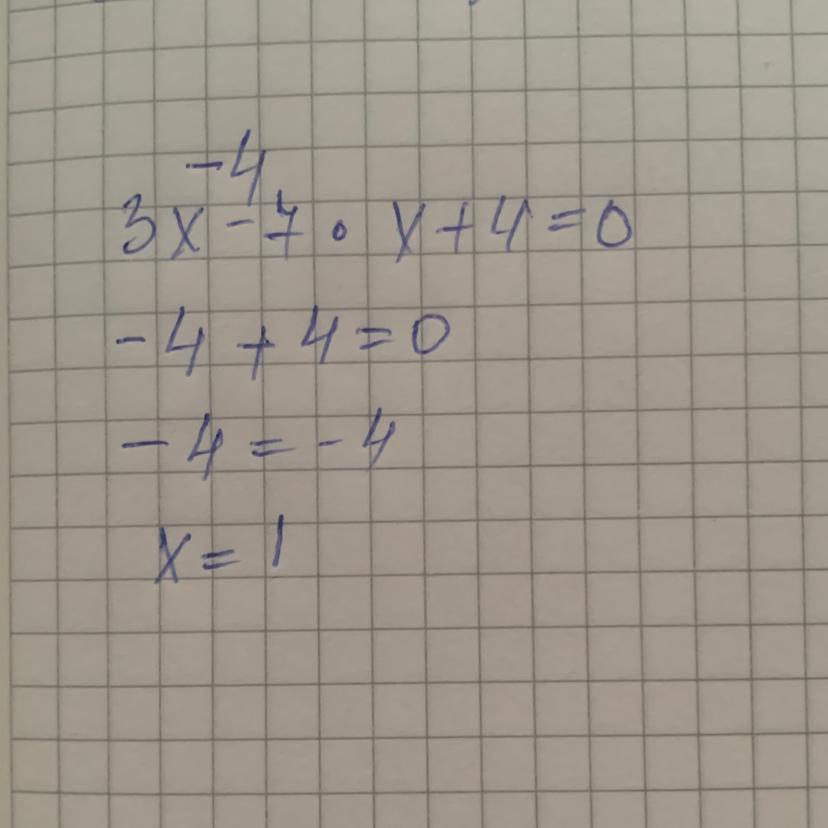 -4
3x - 7 · x + 4 = 0
- 4 + 4 = 0
- 4 = - 4
x = 1